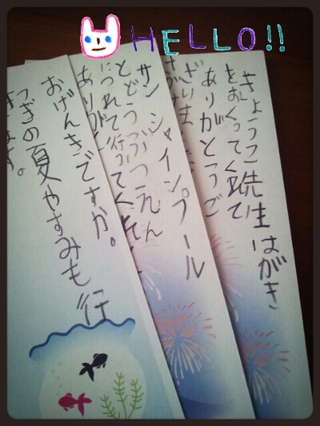 HELLO!!
きょうこ先生はがき
をおくってくれて
ありがとうご
サンシャインプール
とどうぶつえん
につれて行ってくださ
ありが
おげんきですか。
つぎの夏やすみも行
きます。